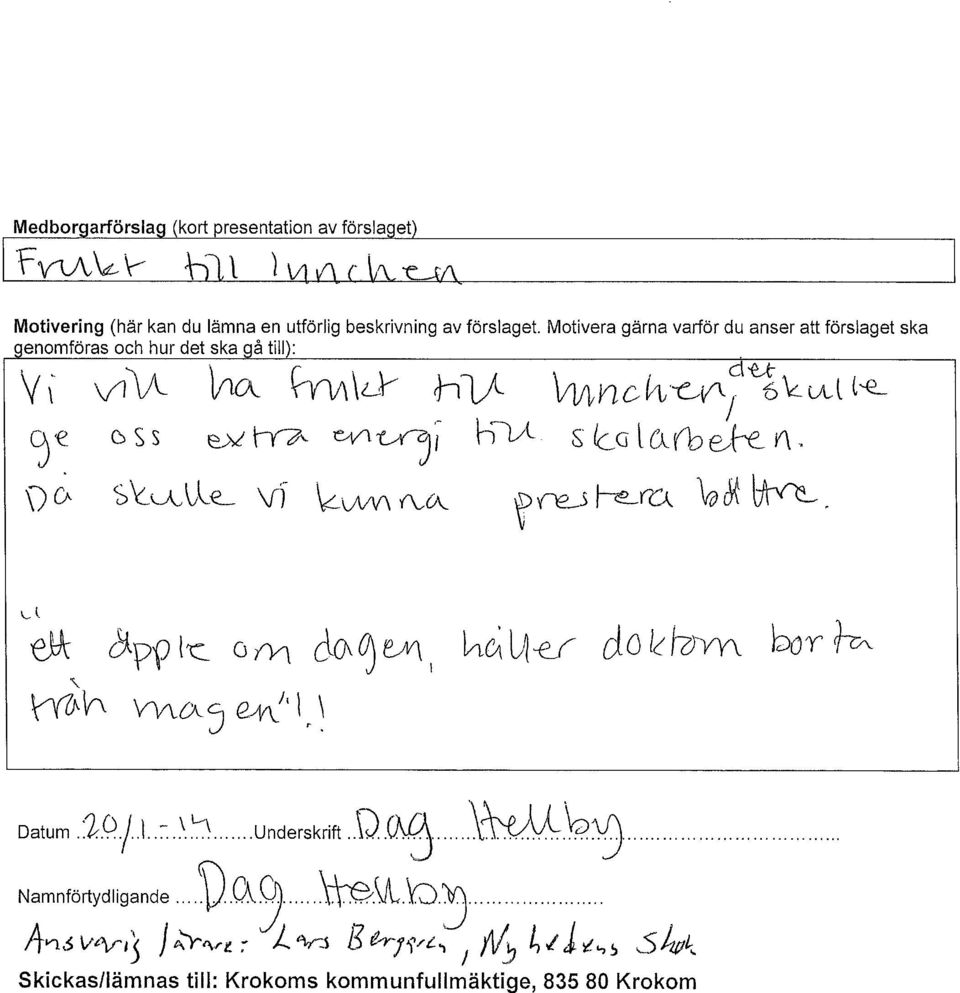 Medborgarförslag (kort presentation av förslaget)
Frukt till lunchen
Motivering (här kan du lämna en utförlig beskrivning av förslaget. Motivera gärna varför du anser att förslaget ska
genomföras och hur det ska gå till):
Vi vill ha frukt till lunchen, det skulle
ge oss extra energi till skolarbeten.
Då skulle vi kunna prestera bättre.
"ett äpple om dagen, håller doktorn borta
från magen"!!
Datum 20/1-14 Underskrift Dag Hellby
Namnförtydligande Dag Hellby
Ansvarig lärare: Lars Berggren, Nyhedens Skola
Skickas/lämnas till: Krokoms kommunfullmäktige, 835 80 Krokom